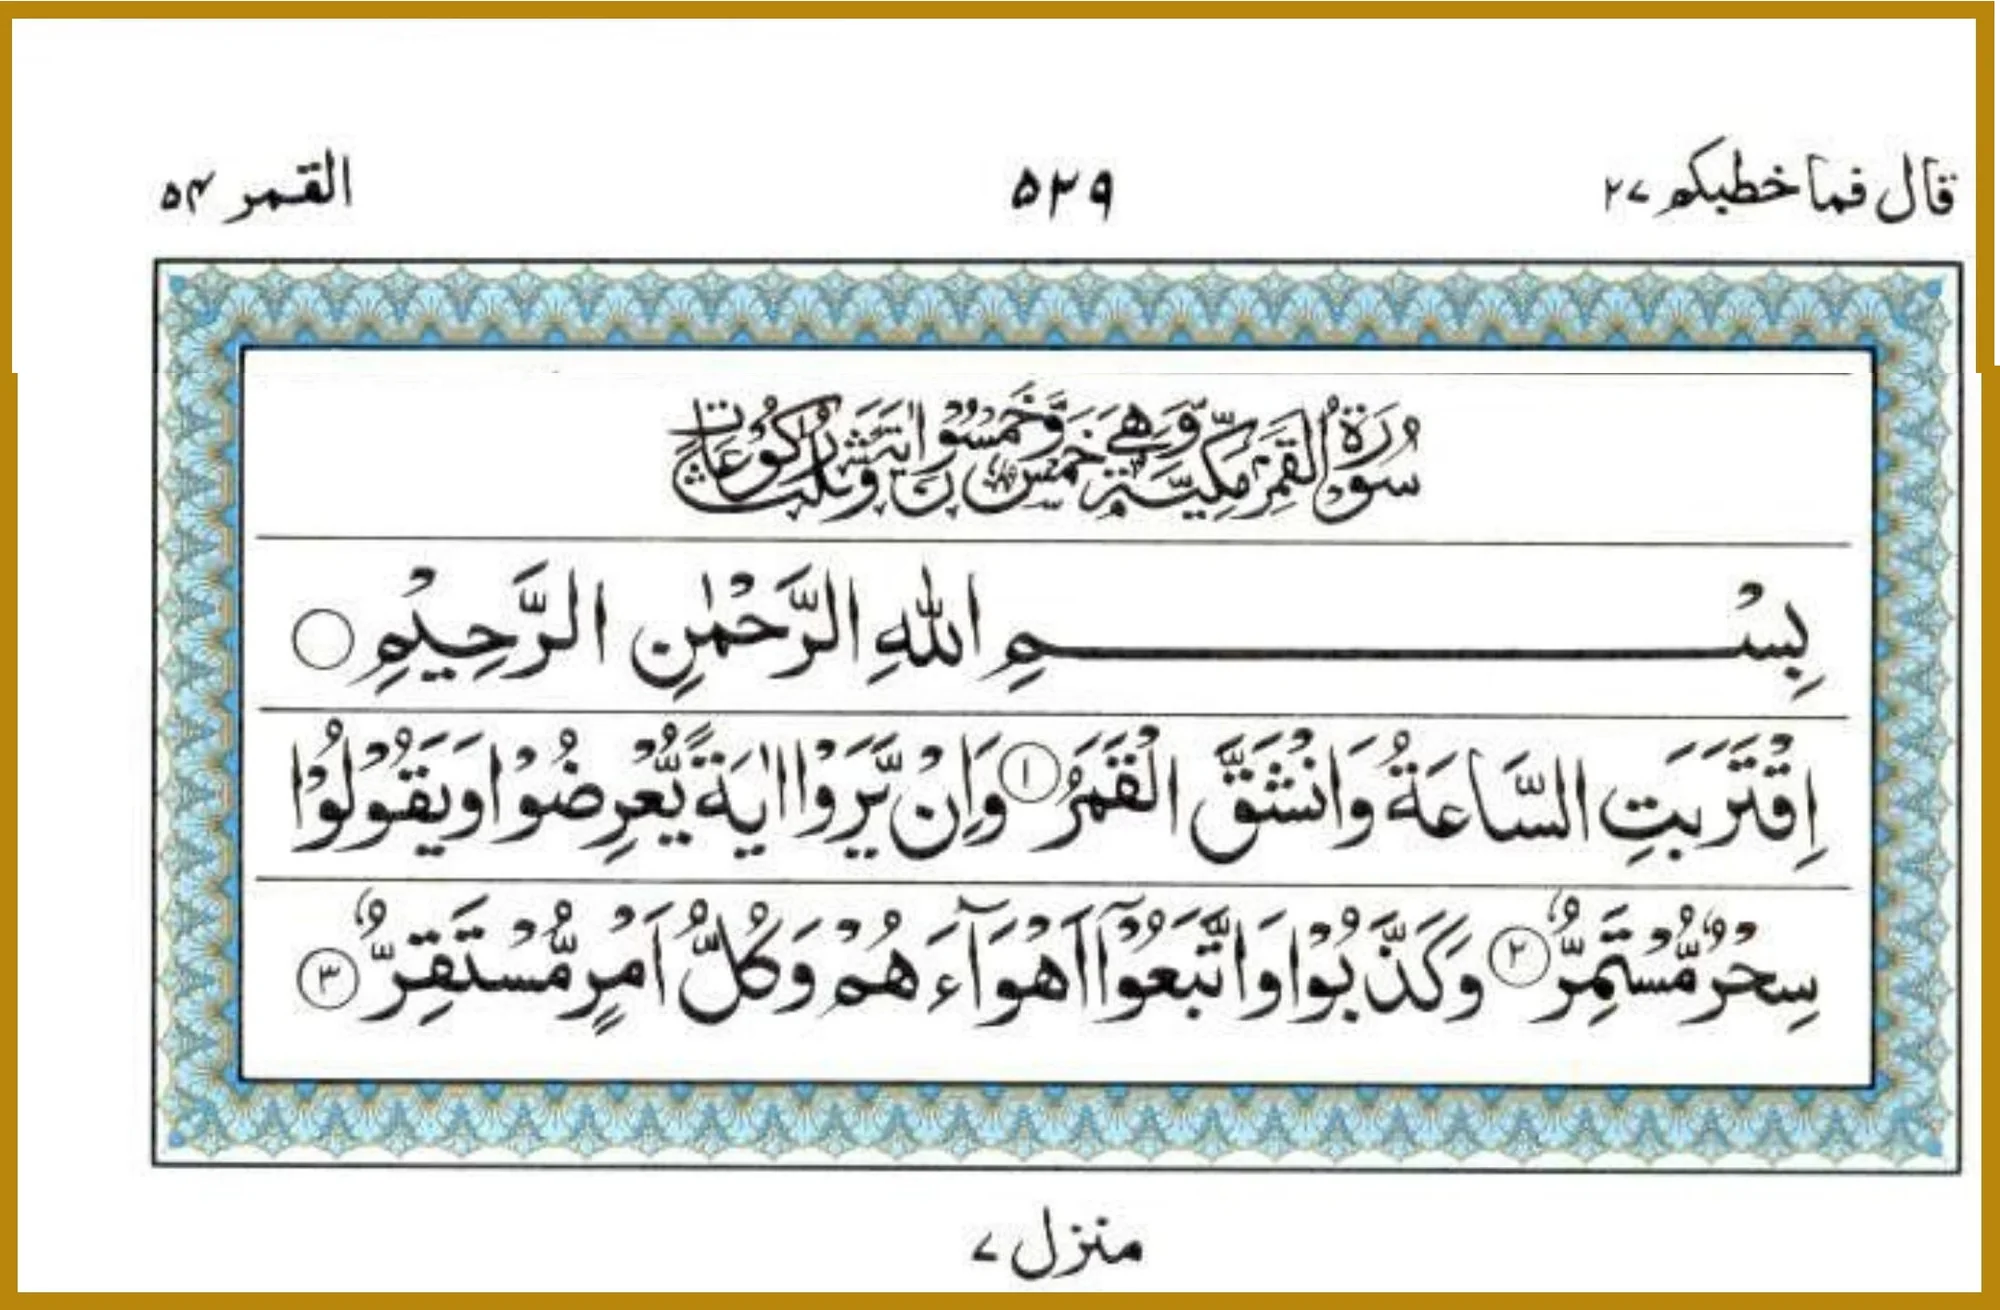 قال فما خطبكم ٢٧
۵۲۹
القمر ۵۴
سُوْرَةُ الْقَمَرِ مَكِّيَّةٌ وَّهِيَ خَمْسٌ وَّخَمْسُوْنَ اٰيَةً وَّثَلٰثُ رُكُوْعَاتٍ
بِسْمِ اللّٰهِ الرَّحْمٰنِ الرَّحِيْمِ
اِقْتَرَبَتِ السَّاعَةُ وَانْشَقَّ الْقَمَرُ ١ وَاِنْ يَّرَوْا اٰيَةً يُّعْرِضُوْا وَيَقُوْلُوْا
سِحْرٌ مُّسْتَمِرٌّ ٢ وَكَذَّبُوْا وَاتَّبَعُوْٓا اَهْوَآءَهُمْ وَكُلُّ اَمْرٍ مُّسْتَقِرٌّ ٣
منزل ٧